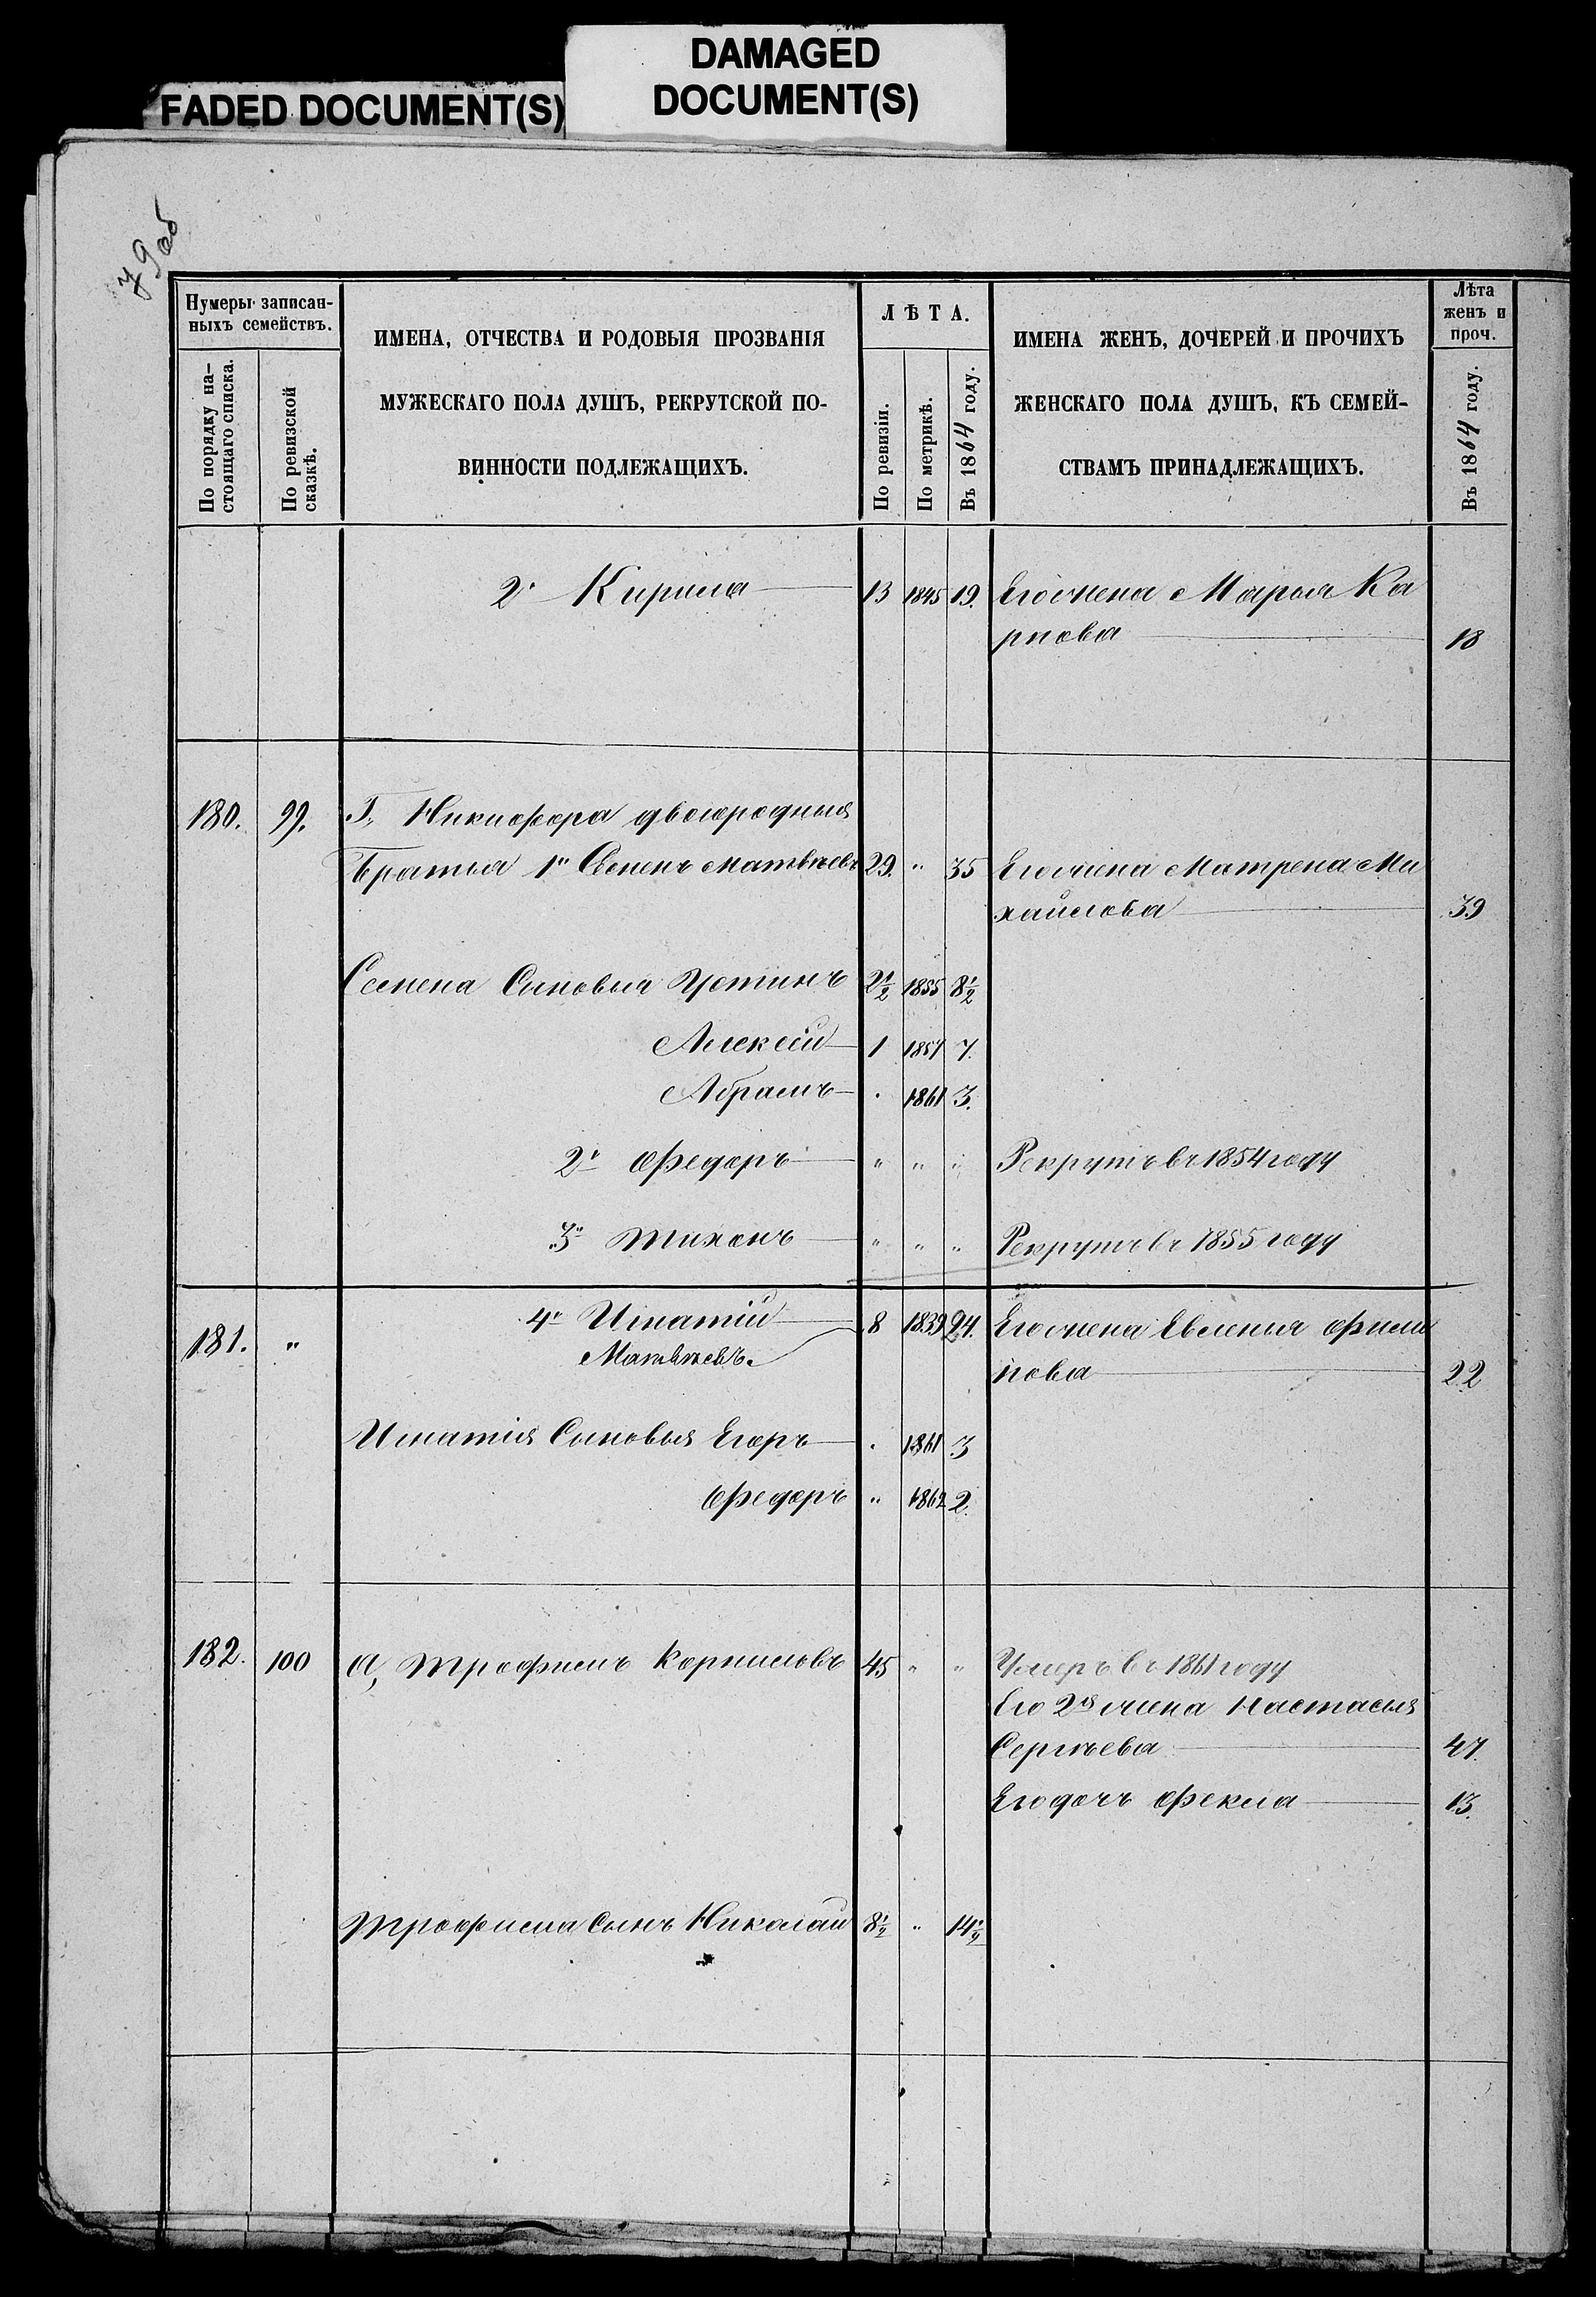 FADED DOCUMENT(S)
DAMAGED
DOCUMENT(S)
79об
Нумеры записан-
ныхъ семействъ.
По порядку на-
стоящаго списка.
По ревизской
сказкѣ.
ИМЕНА, ОТЧЕСТВА И РОДОВЫЯ ПРОЗВАНІЯ
МУЖЕСКАГО ПОЛА ДУШЪ, РЕКРУТСКОЙ ПО-
ВИННОСТИ ПОДЛЕЖАЩИХЪ.
ЛѢТА.
По ревизіи.
По метрикѣ.
Въ 1864 году.
ИМЕНА ЖЕНЪ, ДОЧЕРЕЙ И ПРОЧИХЪ
ЖЕНСКАГО ПОЛА ДУШЪ, КЪ СЕМЕЙ-
СТВАМЪ ПРИНАДЛЕЖАЩИХЪ.
Лѣта
женъ и
проч.
Въ 1864 году.
2й Кирила 13 1845 19. Его жена Марья Ка
рпова 18
180. 99. Г, Никифора двоюродныя
Братья 1й Семенъ Матвѣевъ 29. " 35 Его жена Матрена Ми
хайлова 39
Семена Сыновья Устинъ 2½ 1855 8½
Алексей 1 1857 7.
Абрамъ " 1861 3.
2й Федоръ " " " Рекрутъ въ 1854 году
3й Тихонъ " " " Рекрутъ въ 1855 году
181. " 4й Игнатій 8 1839 24. Его жена Евгенья Фили
Матвѣевъ.
пова 22
Игнатія Сыновья Егоръ " 1861 3
Федоръ " 1862 2.
182. 100 а, Трофимъ Корниловъ 45 " " Умеръ въ 1861 году
Его 2я жена Настасья
Сергѣева 47.
Его дочь Фекла 13.
Трофима Сынъ Николай 8½ " 14½